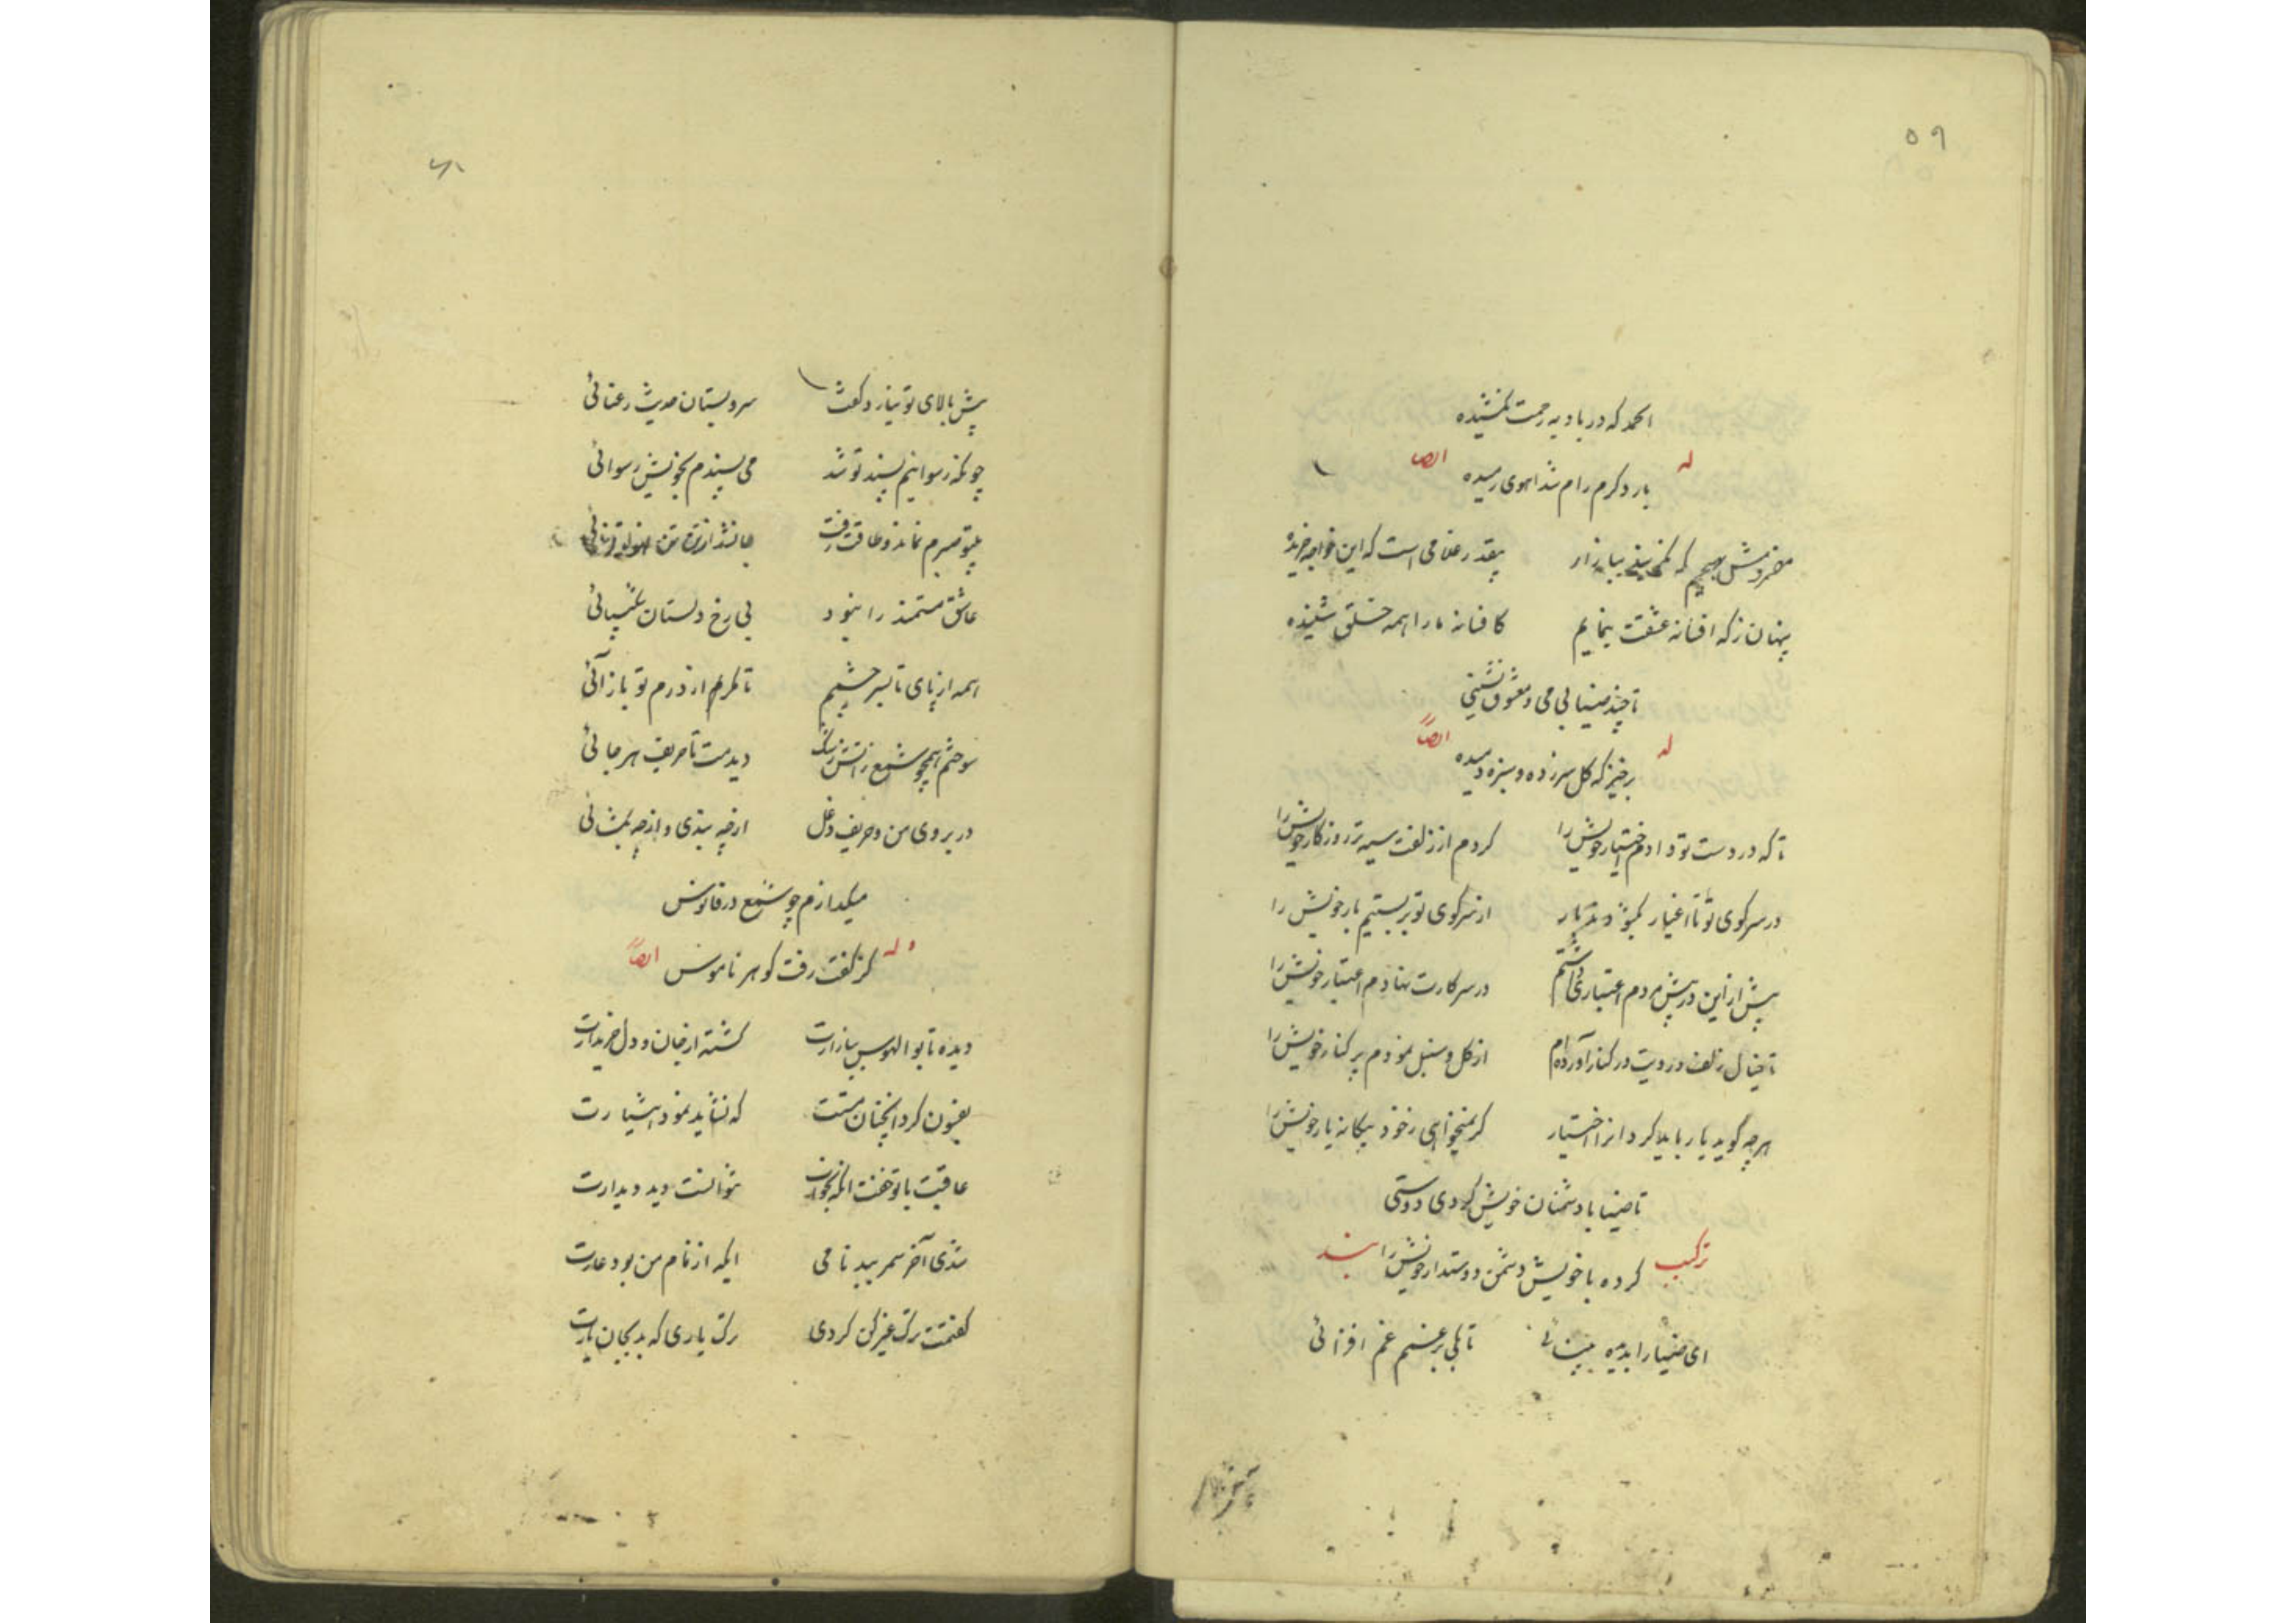 ۵۹
احمد که در بادیه رحمت نکشیده
له ایضا
بار دگرم رام شد اهوی رمیده
مفروش بهیچم که نمی بینی ببازار
بیقدر غلامی است که این خواجه خریده
پنهان ز که افسانه عشقت بنمایم
کافسانه ما را همه خلقی شنیده
تا چند ضیا بی می و معشوق نشینی
له ایضاً
برخیز که گل سر زده و سبزه دمیده
تا که در دست تو دادم اختیار خویش را
کردم از زلفت سیه تر روزگار خویش را
در سر کوی تو تا اغیار بگشودند بار
از سر کوی تو بربستیم بار خویش را
پیش از این در پیش مردم اعتباری داشتم
در سر کارت نهادم اعتبار خویش را
تا خیال زلف و رویت در کنار آورده ام
از گل و سنبل نمودم پر کنار خویش را
هرچه گوید یار باید کرد انرا اختیار
گر نمیخواهی ز خود بیگانه یار خویش را
تا ضیا با دشمنان خویش کردی دوستی
ترکیب بند
کرده با خویش دشمن دوستدار خویش را
ای ضیا را بدیده بینائی
تا بکی بر غمم غم افزائی
پیش بالای تو نیارد گفت
سرو بستان حدیث رعنائی
چونکه رسوائیم پسند تو شد
می پسندم بخویش رسوائی
بیتو صبرم نماند و طاقت رفت
عاشق مستمند را نبود
بی رخ دلستان شکیبائی
همه از پای تا بسر چشمم
تا مگر از درم تو باز آئی
سوختم همچو شمع ز اتش رشک
دیدمت تا حریف هر جائی
در بروی من و حریف دغل
از چه بندی و از چه بگشائی
میگدازم چو شمع در فانوس
وله ایضاً
کز کفت رفت گوهر ناموس
دیده تا بوالهوس ببازارت
گشته از جان و دل خریدارت
بفسون کرد انچنان مستت
که نشاید نمود هشیارت
عاقبت با تو خفت انکه بخواب
نتوانست دید دیدارت
شدی آخر سمر ببدنامی
ایکه از نام من بود عارت
گفتمت ترک غیر کن کردی
ترک یاری که بد بجان یارت